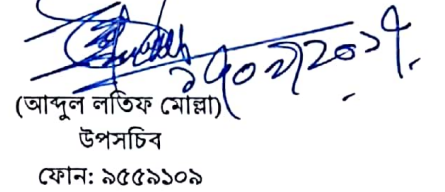 (আব্দুল লতিফ মোল্লা)
উপসচিব
ফোন: ৯৫৫৯১০৯